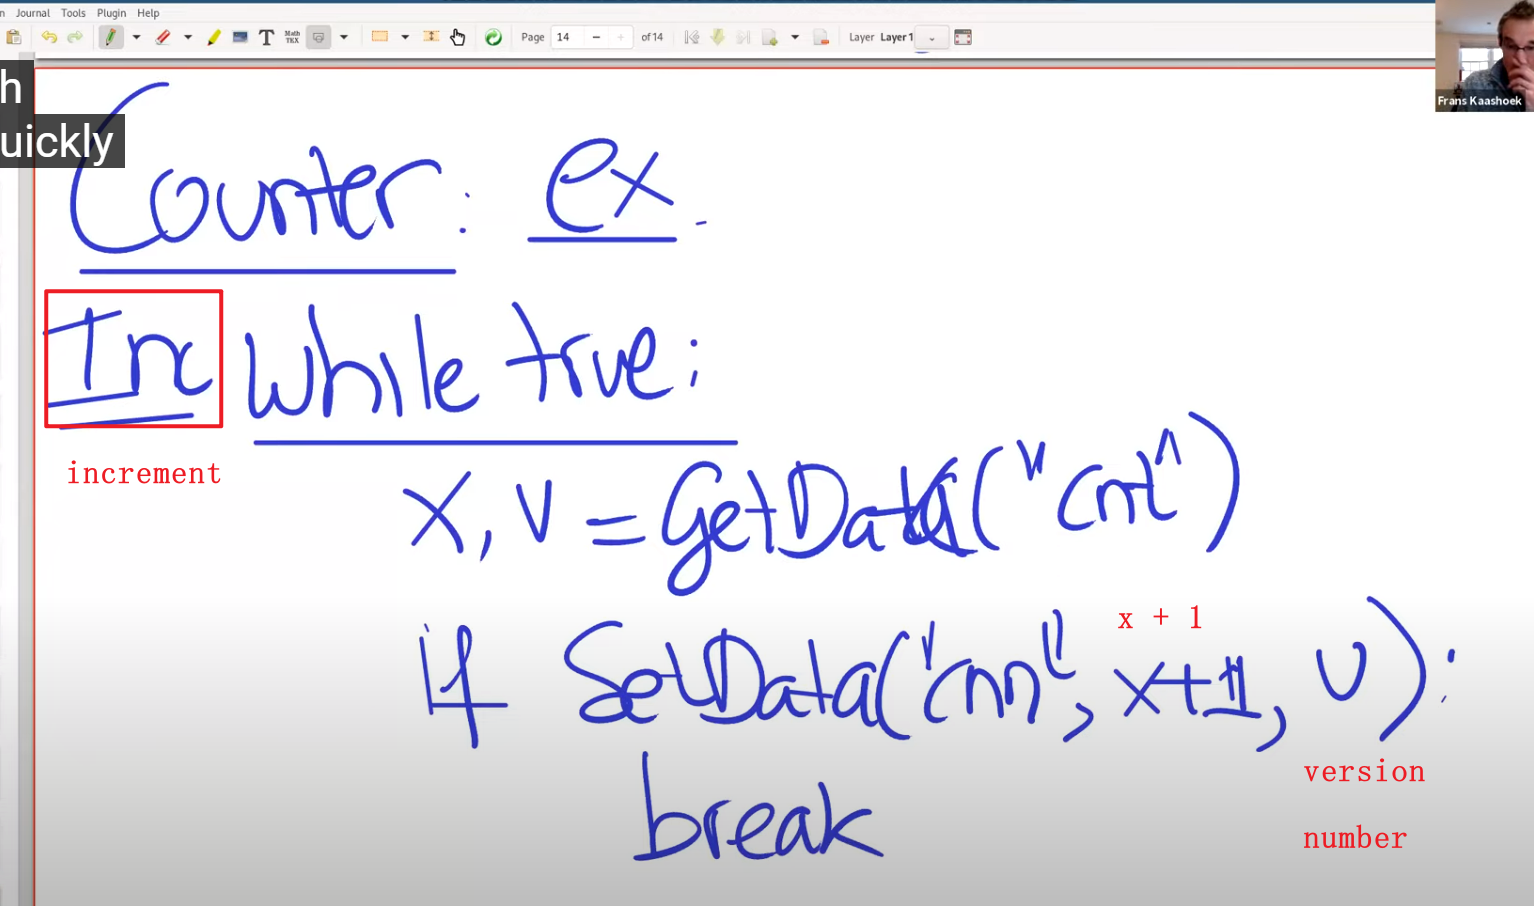 n Journal Tools Plugin Help
T Math TEX Page 14 of 14 Layer Layer 1
Frans Kaashoek
h
uickly
Counter: ex.
Inc While true:
increment
X, V = GetData("cnt")
x + 1
if SetData("cnt", X+1, V):
version
number
break